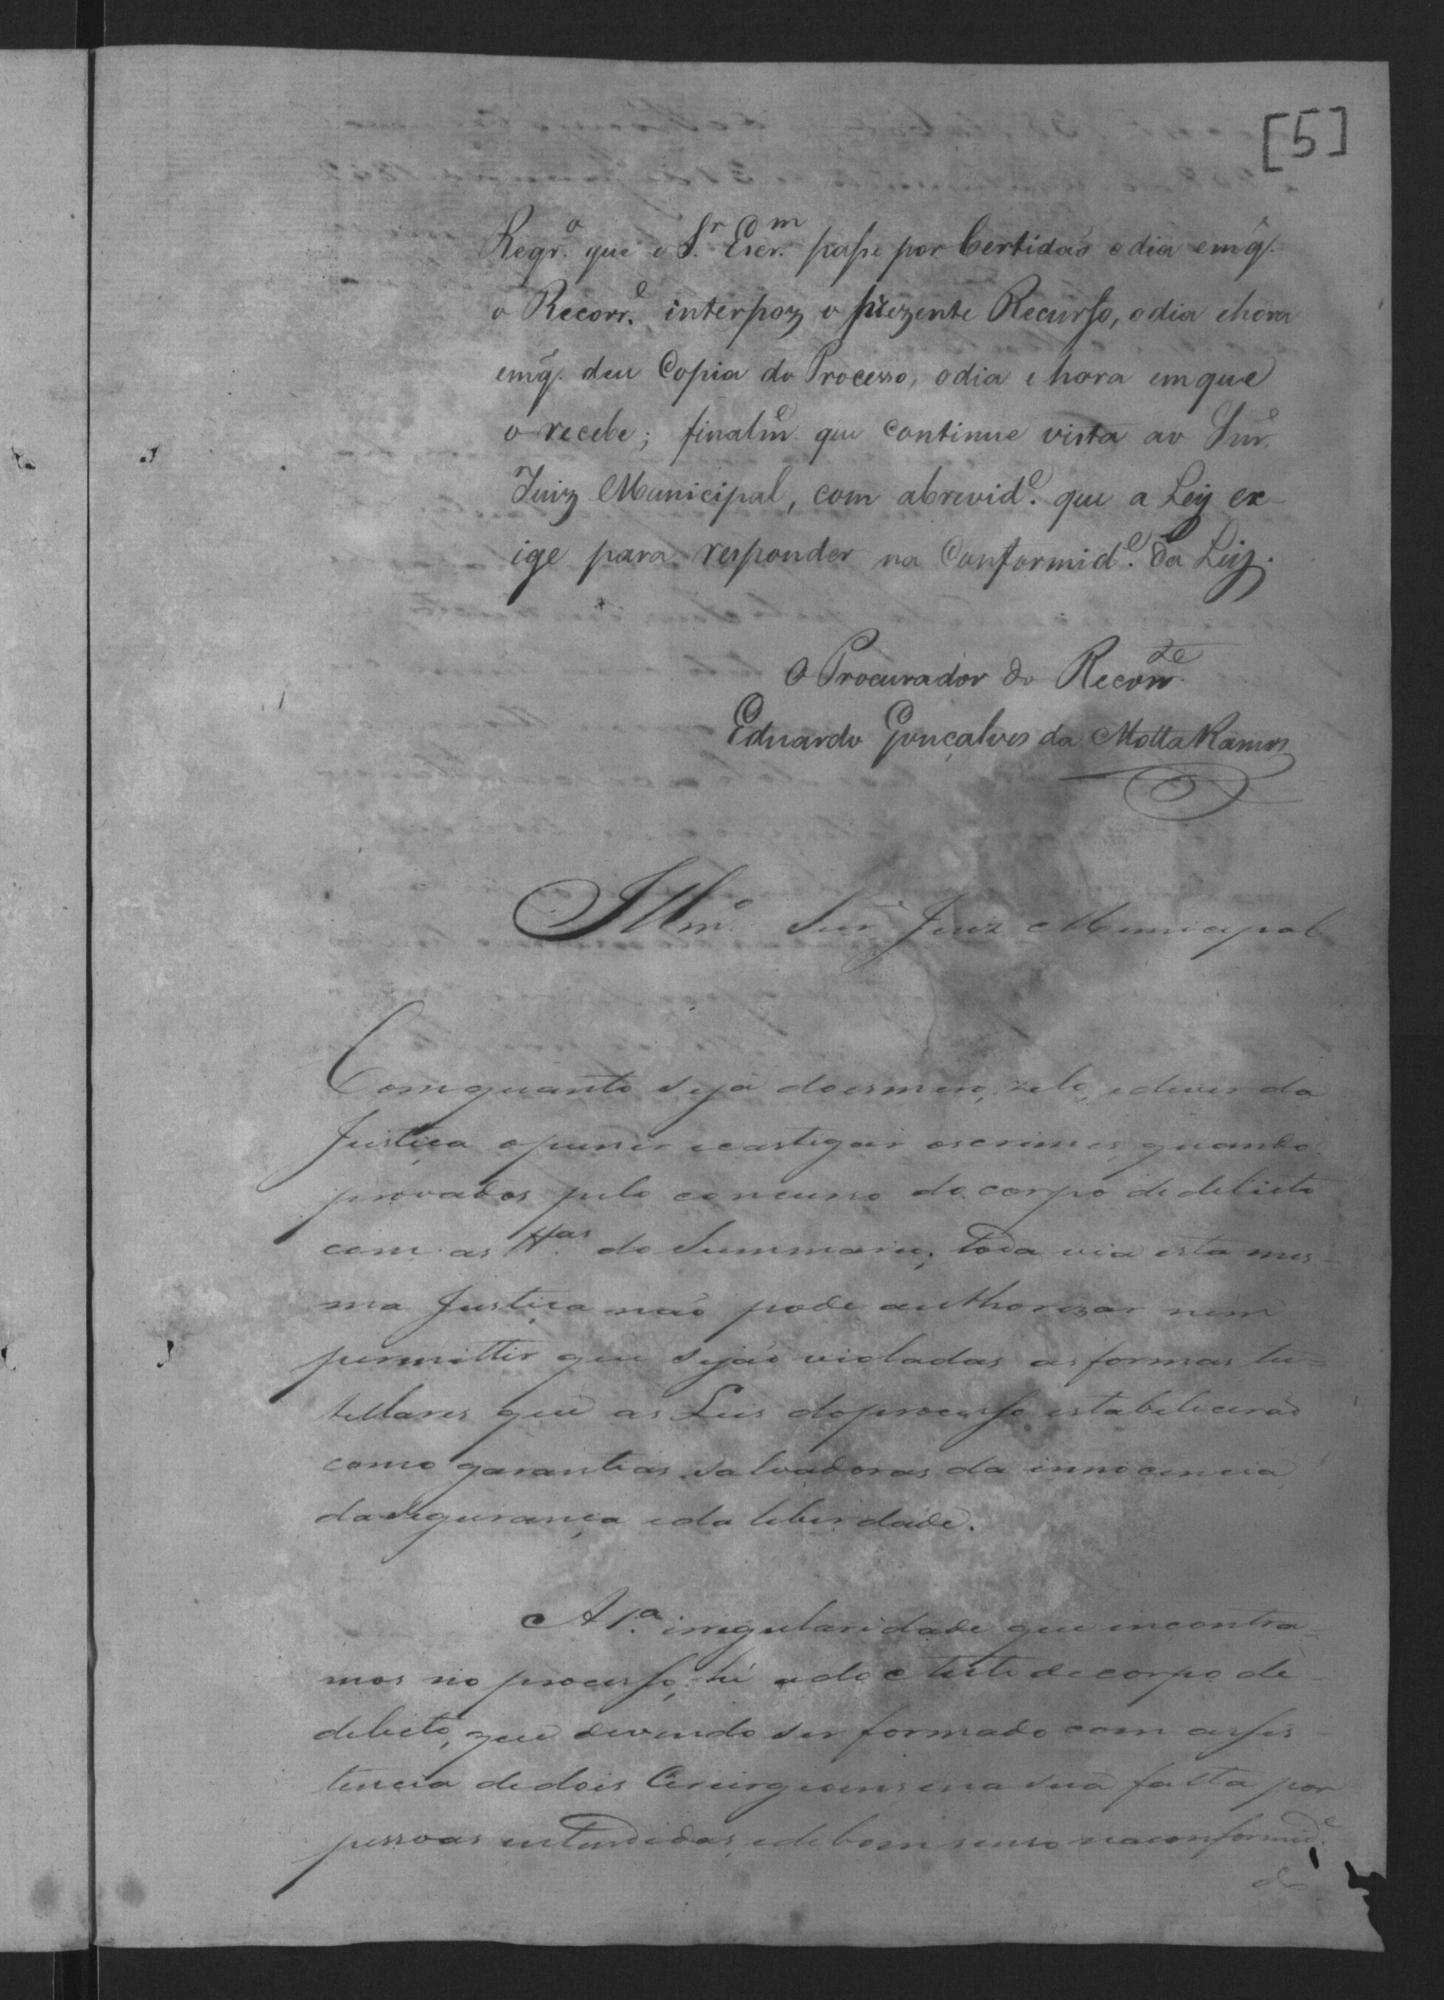 [5]
Reqr.º que o S.r Escr.m passe por Certidaõ o dia em q̃.
o Recorr.e interpoz o prezente Recurso, o dia e hora
em q̃. deu Copia do Processo, o dia e hora em que
o recebe; finalm.e que continue vista ao Snr.
Juiz Municipal, com a brevid.e que a Ley ex-
ige para responder na Conformid.e da Ley.
O Procurador do Recorr.te
Eduardo Gonçalves da Motta Ramos
Illm.º Snr Juiz Municipal
Com quanto seja do esmero, zelo, e dever da
Justiça o punir e castigar os crimes quando
provados pelo concurso do corpo de delicto
com as tt.as do Summario; toda via esta mes-
ma Justiça naõ pode authorizar nem
permittir que sejaõ violadas as formas tu-
tellares que as Leis do processo estabeleceraõ
como garantias salvadoras da innocencia
da segurança e da liberdade.
A 1.ª irregularidade que incontra-
mos no processo, hé a do auto de corpo de
delicto, que devendo ser formado com assis-
tencia de dois Cirurgioens e na sua falta por
pessoas entendidas, e de bom senso na conformid.e